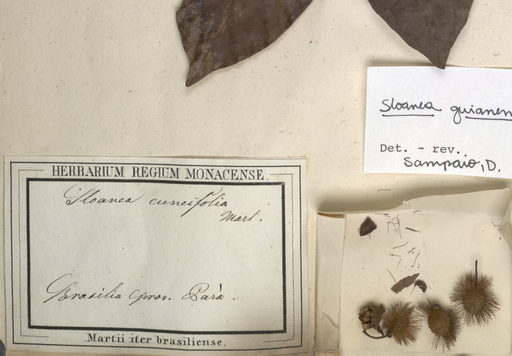 Sloanea guianen
Det. - rev.
Sampaio, D.
HERBARIUM REGIUM MONACENSE.
Sloanea cuneifolia
Mart.
Brasilia prov. Parà.
Martii iter brasiliense.